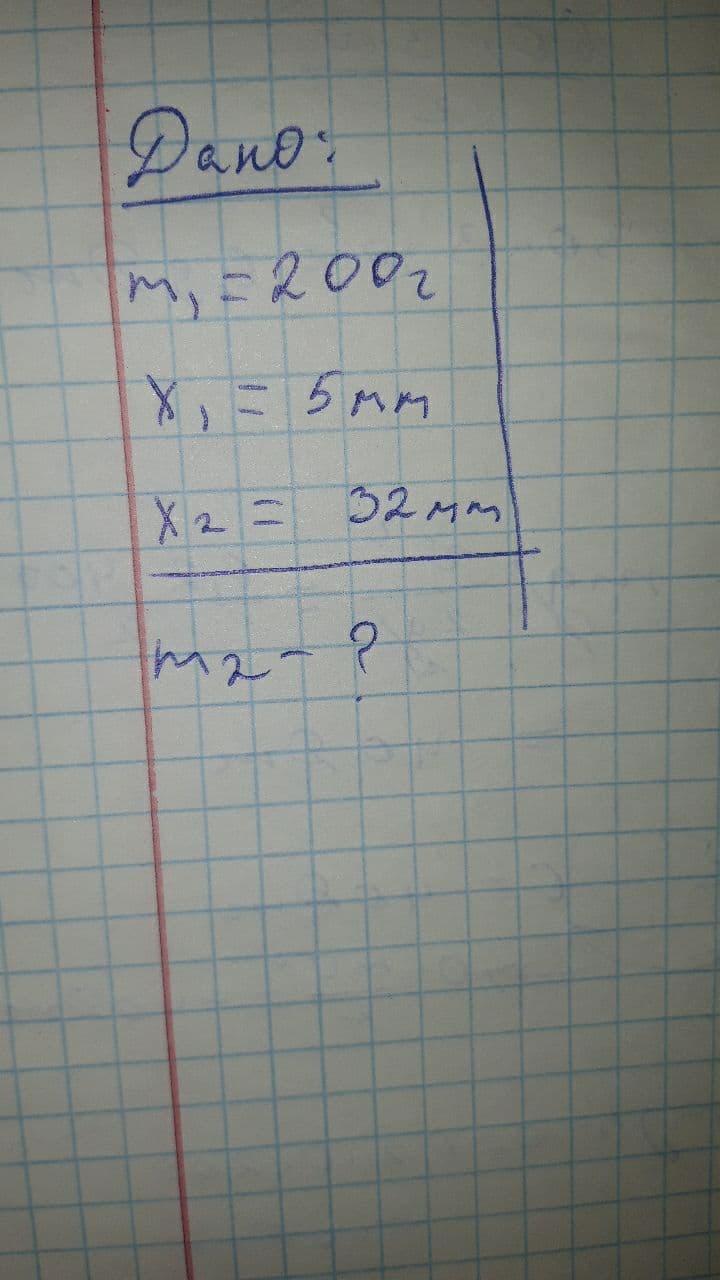 Дано:
m₁ = 200г
x₁ = 5мм
x₂ = 32мм
m₂ - ?